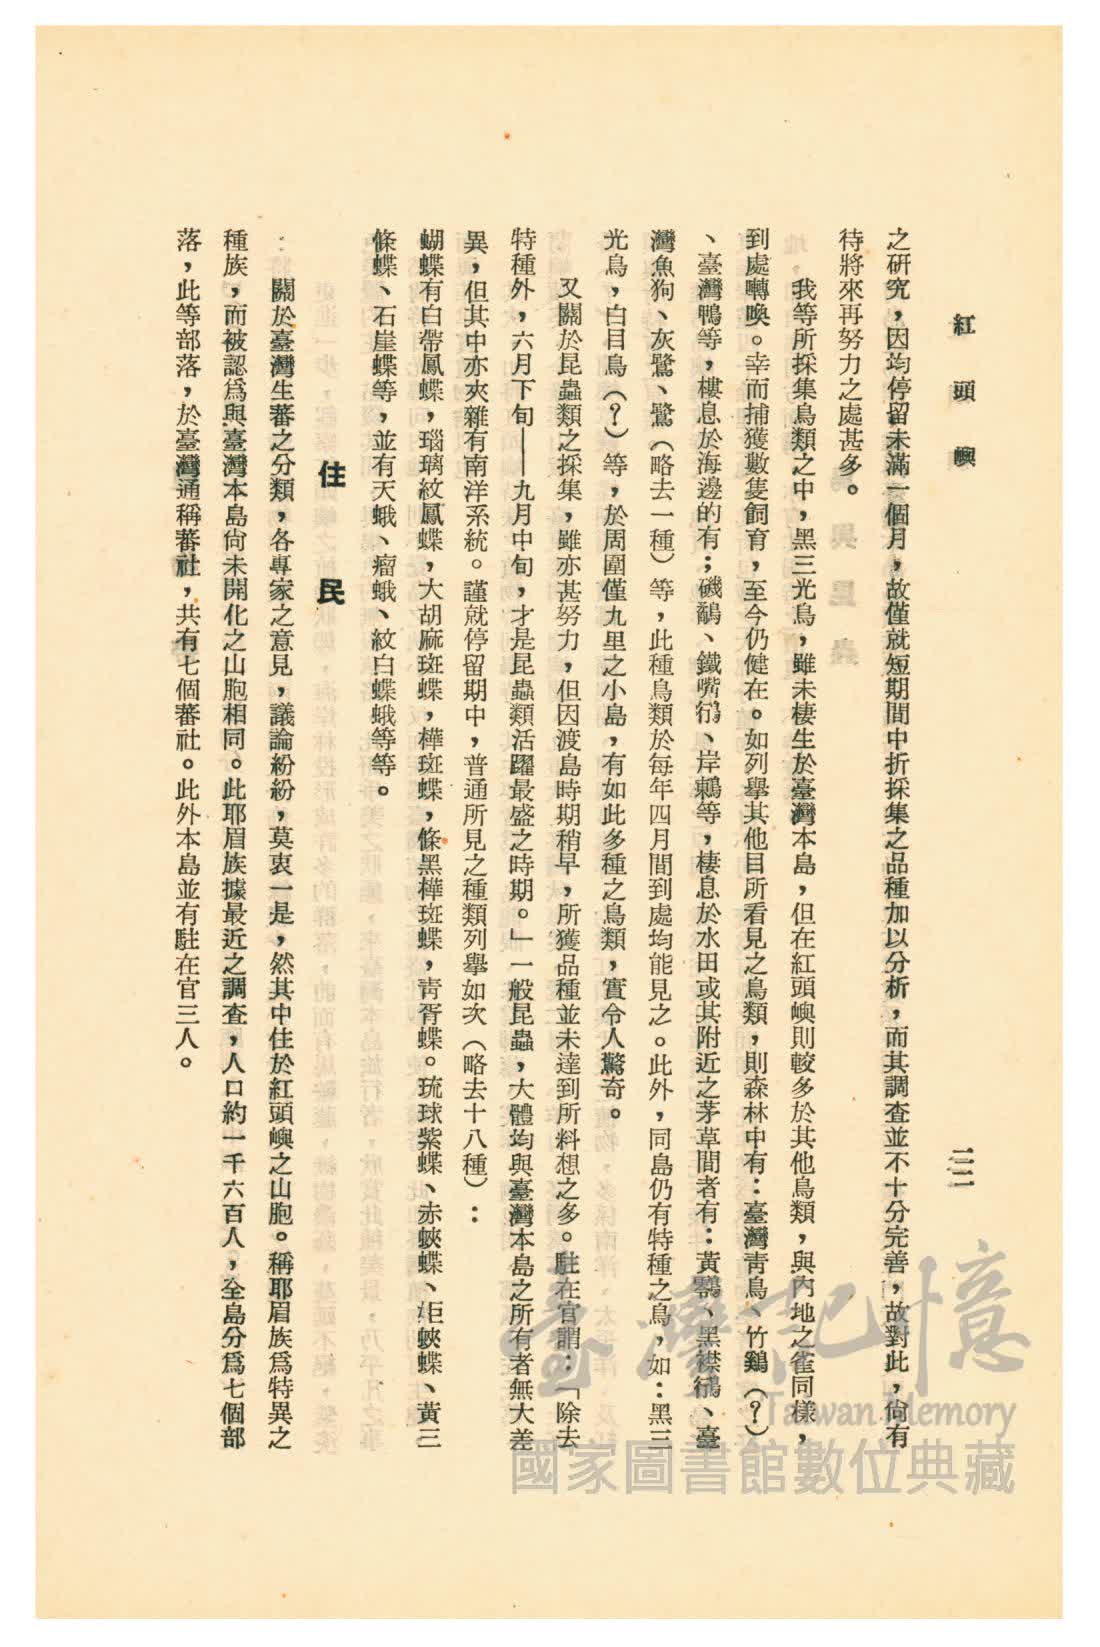 紅頭嶼
二二
之研究，因均停留未滿一個月，故僅就短期間中折採集之品種加以分析，而其調查並不十分完善，故對此，尙有
待將來再努力之處甚多。
我等所採集鳥類之中，黑三光鳥，雖未棲生於臺灣本島，但在紅頭嶼則較多於其他鳥類，與內地之雀同樣，
到處囀喚。幸而捕獲數隻飼育，至今仍健在。如列舉其他目所看見之鳥類，則森林中有：臺灣靑鳥、竹鷄（？）
、臺灣鴨等，棲息於海邊的有；磯鷸、鐵嘴鴴、岸鶫等，棲息於水田或其附近之茅草間者有：黃鷚、黑襟鴴、臺
灣魚狗、灰鷺、鷺（略去一種）等，此種鳥類於每年四月間到處均能見之。此外，同島仍有特種之鳥，如：黑三
光鳥，白目鳥（？）等，於周圍僅九里之小島，有如此多種之鳥類，實令人驚奇。
又關於昆蟲類之採集，雖亦甚努力，但因渡島時期稍早，所獲品種並未達到所料想之多。駐在官謂：「除去
特種外，六月下旬——九月中旬，才是昆蟲類活躍最盛之時期。」一般昆蟲，大體均與臺灣本島之所有者無大差
異，但其中亦夾雜有南洋系統。謹就停留期中，普通所見之種類列舉如次（略去十八種）：
蝴蝶有白帶鳳蝶，瑙璃紋鳳蝶，大胡麻斑蝶，樺斑蝶，條黑樺斑蝶，靑胥蝶。琉球紫蝶、赤蛺蝶、疟蛺蝶、黃三
條蝶、石崖蝶等，並有天蛾、瘤蛾、紋白蝶蛾等等。
住民
關於臺灣生蕃之分類，各專家之意見，議論紛紛，莫衷一是，然其中住於紅頭嶼之山胞。稱耶眉族爲特異之
種族，而被認爲與臺灣本島尙未開化之山胞相同。此耶眉族據最近之調查，人口約一千六百人，全島分爲七個部
落，此等部落，於臺灣通稱蕃社，共有七個蕃社。此外本島並有駐在官三人。
臺灣記憶
Taiwan Memory
國家圖書館數位典藏